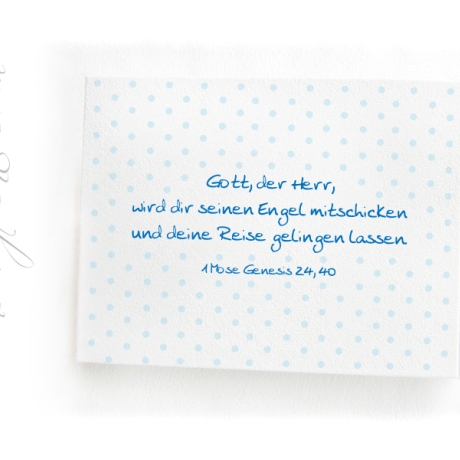 Gott, der Herr,
wird dir seinen Engel mitschicken
und deine Reise gelingen lassen
1 Mose Genesis 24, 40